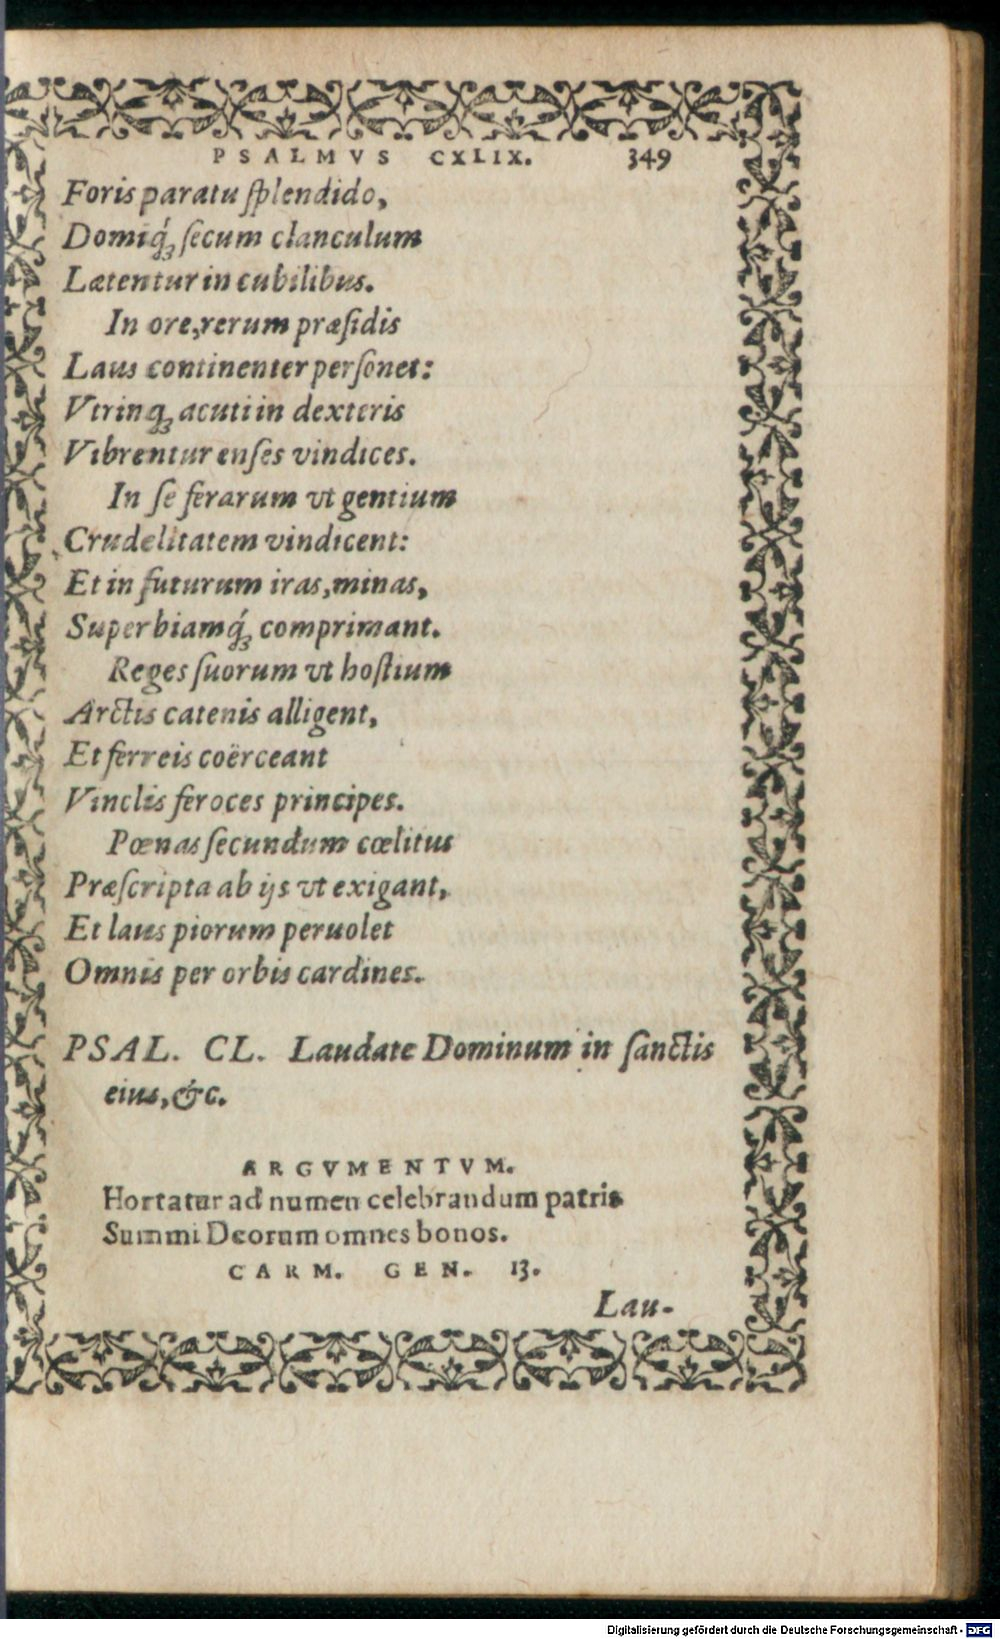 PSALMVS CXLIX. 349
Foris paratu ſplendido,
Domiq́ꝫ ſecum clanculum
Lætentur in cubilibus.
In ore, rerum præſidis
Laus continenter perſonet:
Vtrinqꝫ acuti in dexteris
Vibrentur enſes vindices.
In ſe ferarum vt gentium
Crudelitatem vindicent:
Et in futurum iras, minas,
Superbiamq́ꝫ comprimant.
Reges ſuorum vt hoſtium
Arctis catenis alligent,
Et ferreis coërceant
Vinclis feroces principes.
Pœnas ſecundum cœlitus
Præſcripta ab ijs vt exigant,
Et laus piorum peruolet
Omnis per orbis cardines.
PSAL. CL. Laudate Dominum in ſanctis
eius, &c.
ARGVMENTVM.
Hortatur ad numen celebrandum patris
Summi Deorum omnes bonos.
CARM. GEN. 13.
Lau-
Digitalisierung gefördert durch die Deutsche Forschungsgemeinschaft - DFG